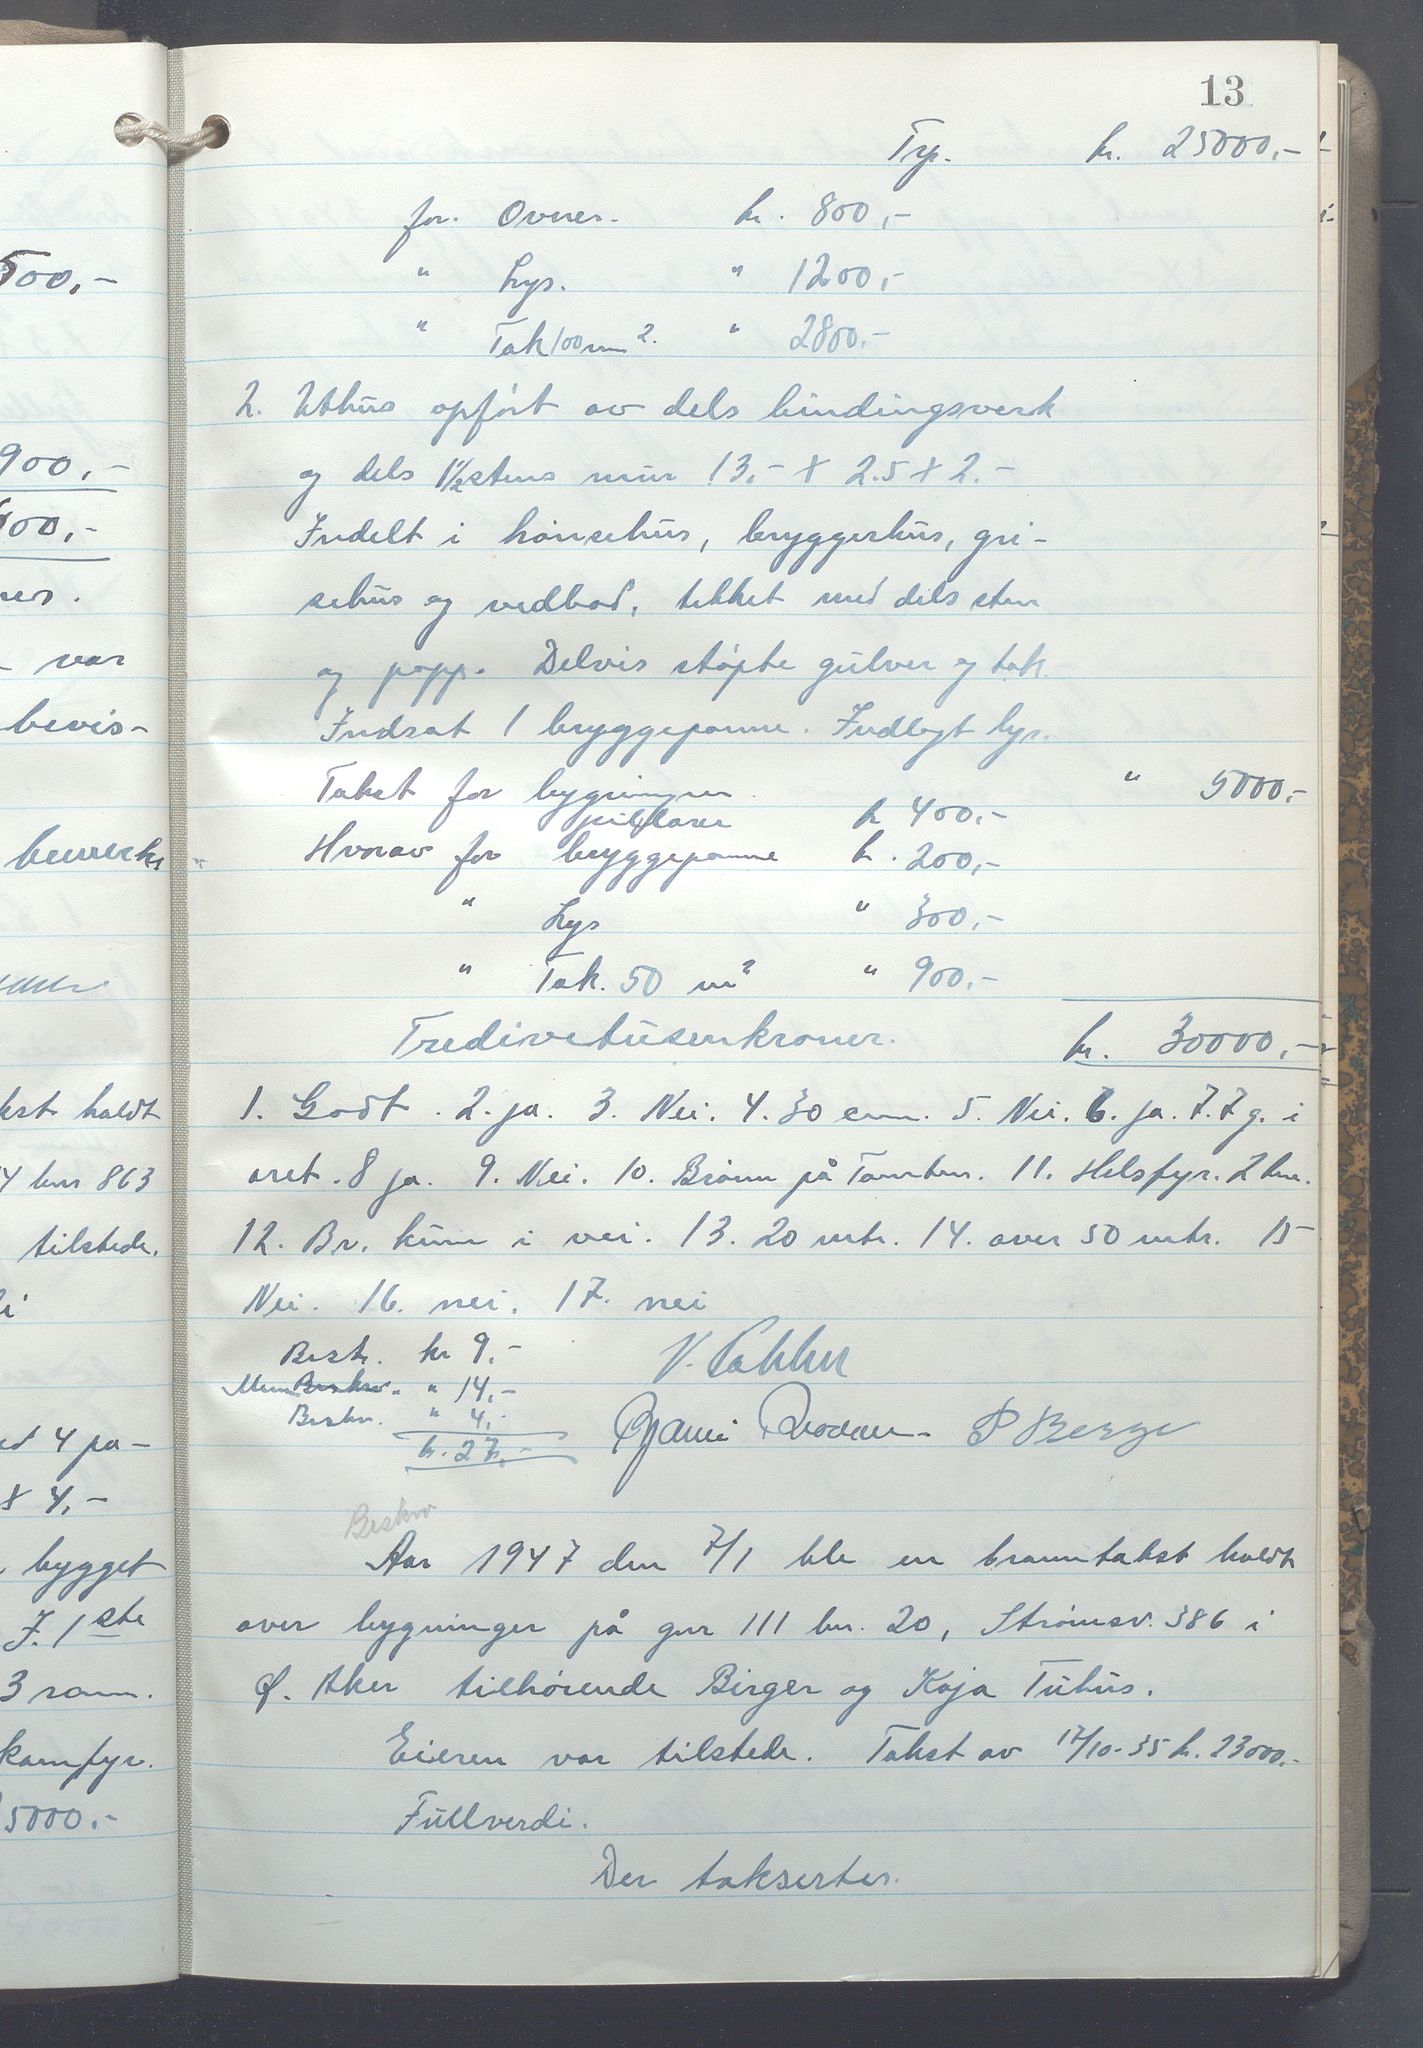 13
Trp. kr. 25000,-
for. Ovner. kr. 800,-
" Lys. " 1200,-
" Tak 100 m². " 2800.-
2. Uthus opført av dels bindingsverk
og dels 1½ stens mur 13.- x 2.5 x 2.-
Indelt i hønsehus, bryggerhus, gri-
sehus og vedbod, tekket med dels sten
og papp. Delvis støpte gulver og tak.
Indsat 1 bryggepanne. Indlagt lys.
Takst for bygningen " 5000,-
pillarer kr 400,-
Hvorav for bryggepanne kr. 200,-
" Lys " 300,-
" Tak. 50 m² " 900,-
Tredivetusenkroner. kr. 30000,-
1. Godt. 2. ja. 3. Nei. 4. 30 cm. 5. Nei. 6. ja. 7. 7 g. i
aret. 8 ja. 9. Nei. 10. Brønn på Tomten. 11. Helsfyr. 2 km.
12. Br. kum i vei. 13. 20 mtr. 14. over 50 mtr. 15
Nei. 16. nei. 17. nei
Best. kr 9,-
" 14,-
Beskr. " 4,-
kr. 27,-
P Berge
Beskr
Aar 1947 den 7/1 ble en branntakst holdt
over bygninger på gnr 111 bnr. 20, Strømsv. 386 i
Ø. Aker tilhørende Birger og Kaja Tuhus.
Eieren var tilstede. Takst av 17/10-35 kr. 23000.-
Fullverdi.
Der takseres.
500,-
900,-
var
bevis-
holdt
bnr 863
tilstede.
4 pa-
x 4,-
bygget
I. 1ste
3 rom.
komfyr.
5000.-